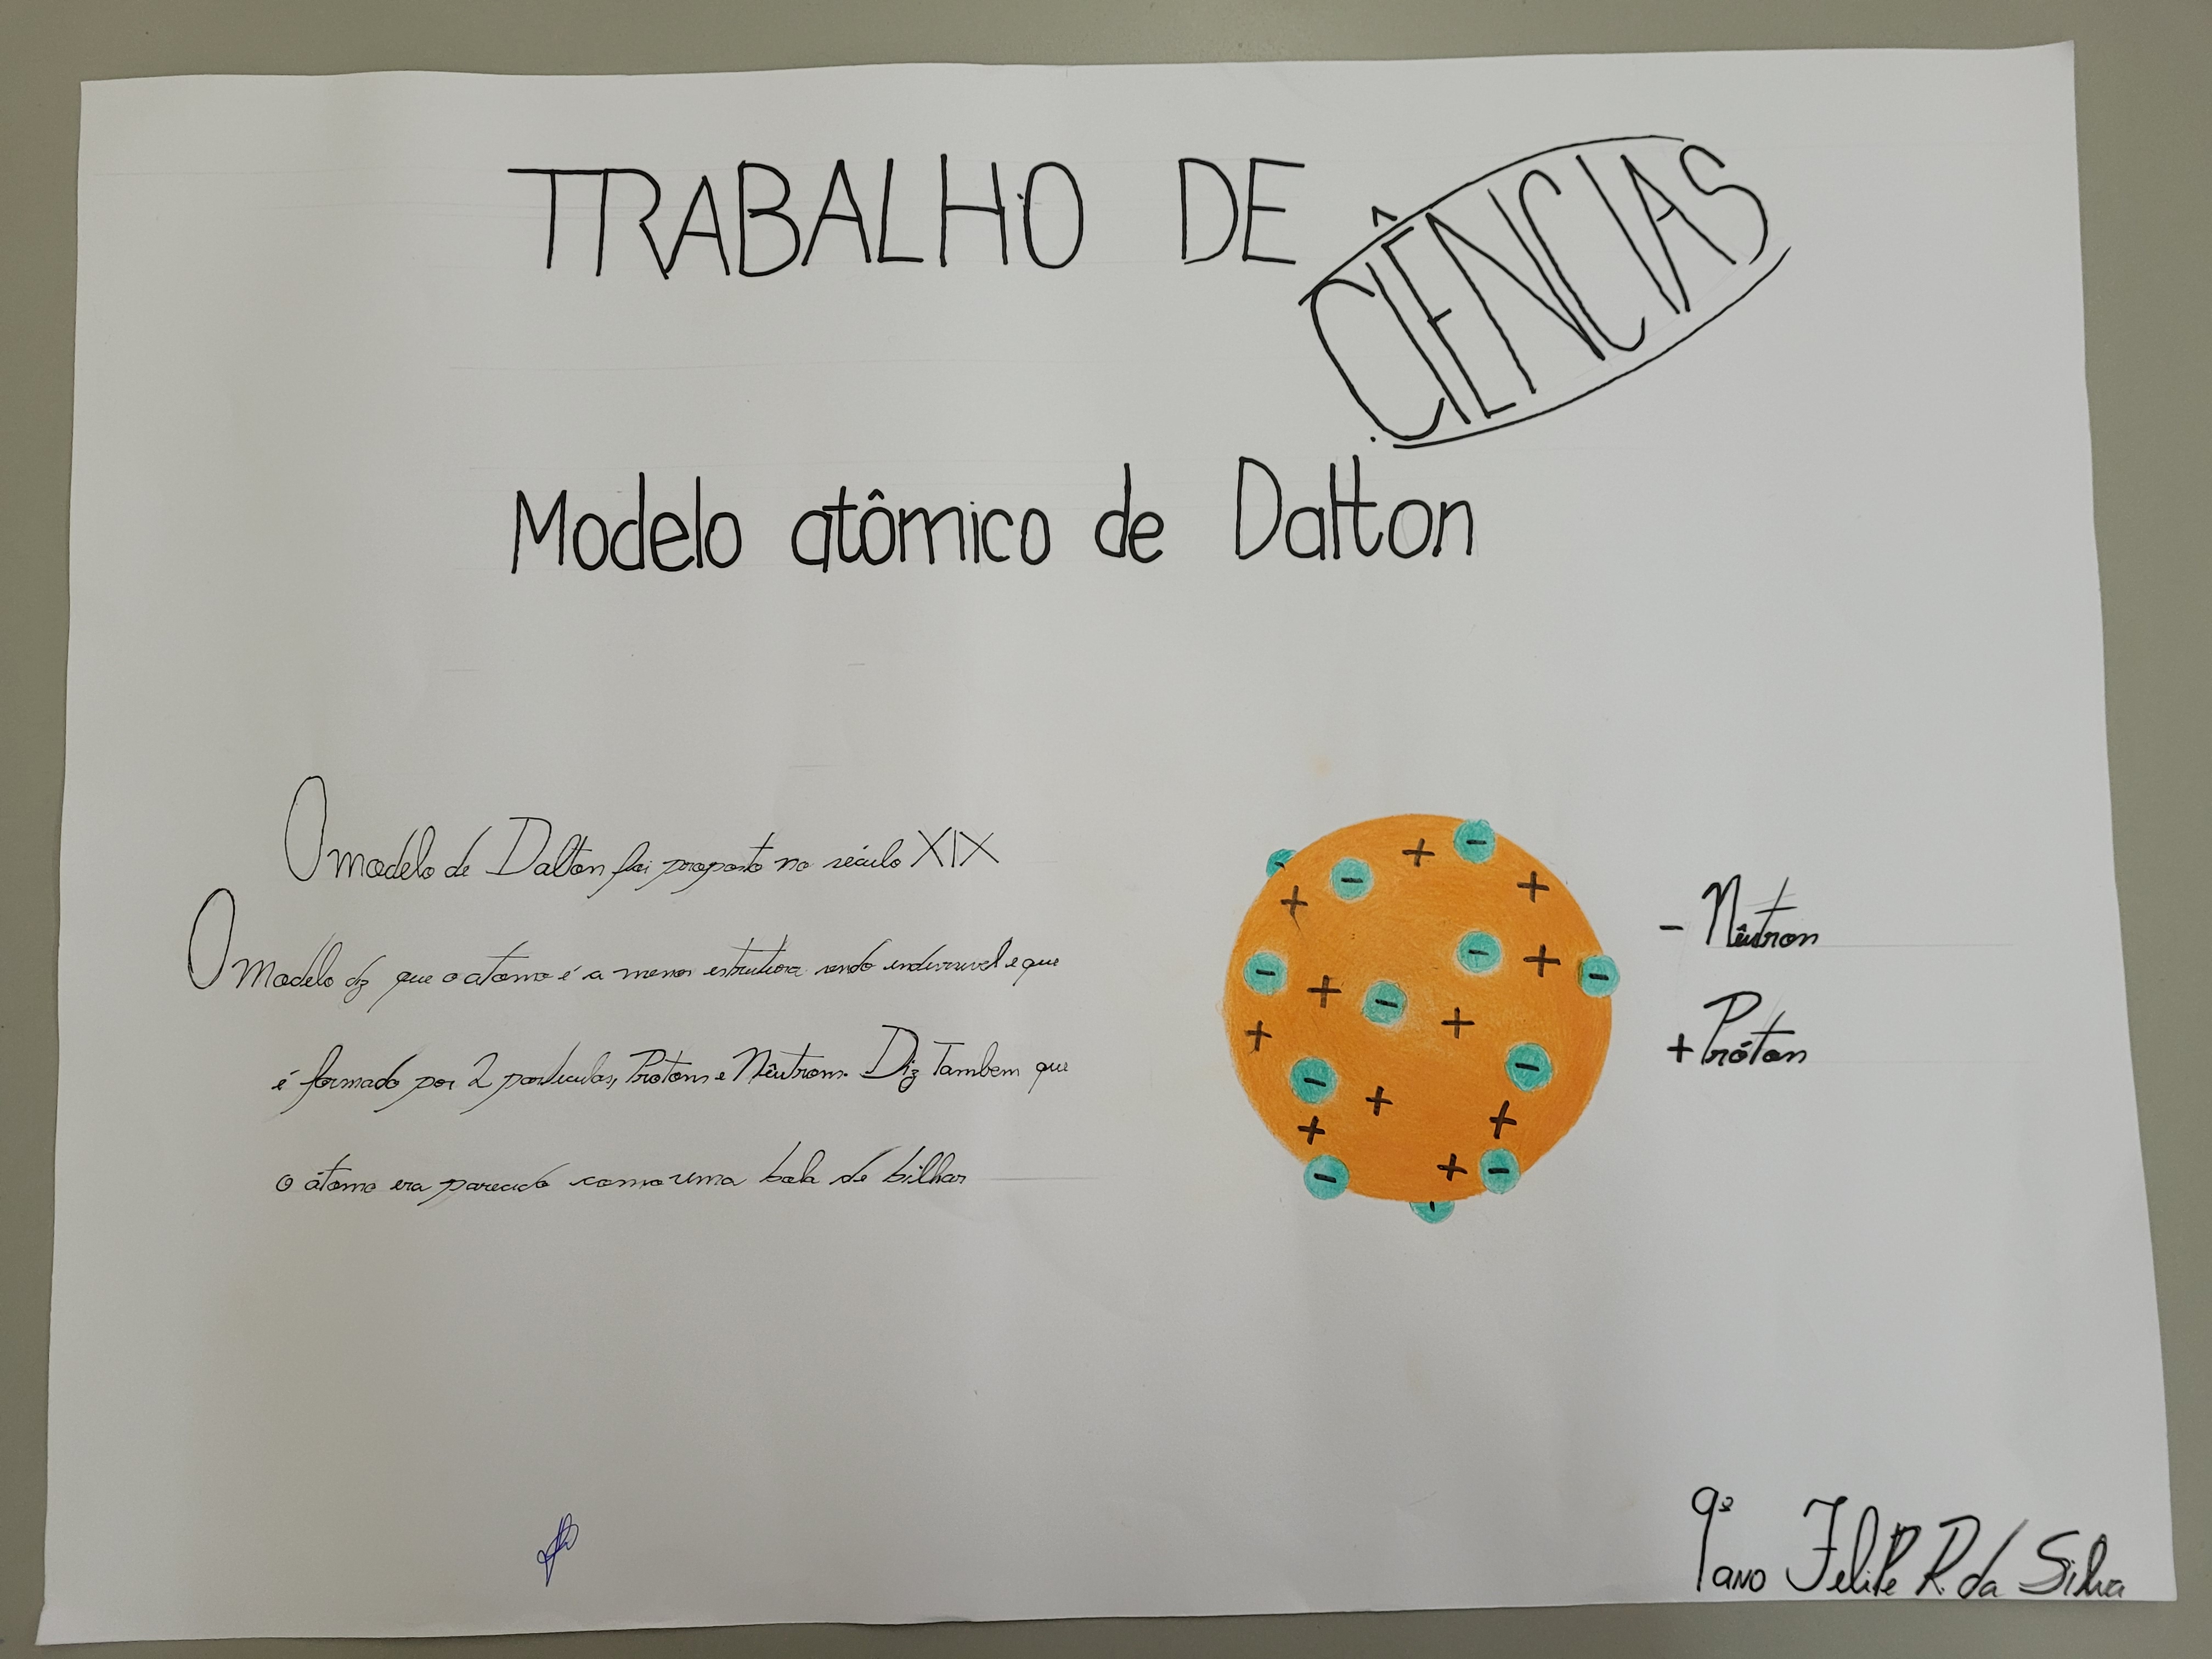 TRABALHO DE CIÊNCIAS
Modelo atômico de Dalton
O modelo de Dalton foi proposto no século XIX
O modelo diz que o atomo é a menor estrutura sendo indivisivel e que
é formado por 2 particulas, Protons e Nêutrons. Diz Tambem que
o átomo era parecido como uma bola de bilhar
- Nêutron
+ Próton
9º ano Felipe R. da Silva